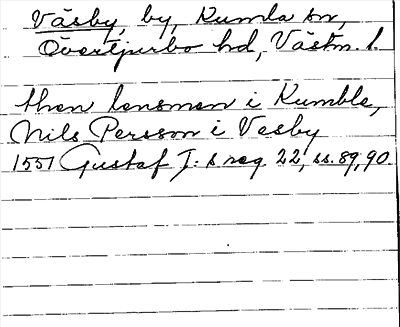 Väsby, by, Kumla sn,
Övertjurbo hd, Västm. l.
then lensmen i Kumble,
Nils Persson i Vesby
1551 Gustaf I:s reg 22, ss. 89, 90